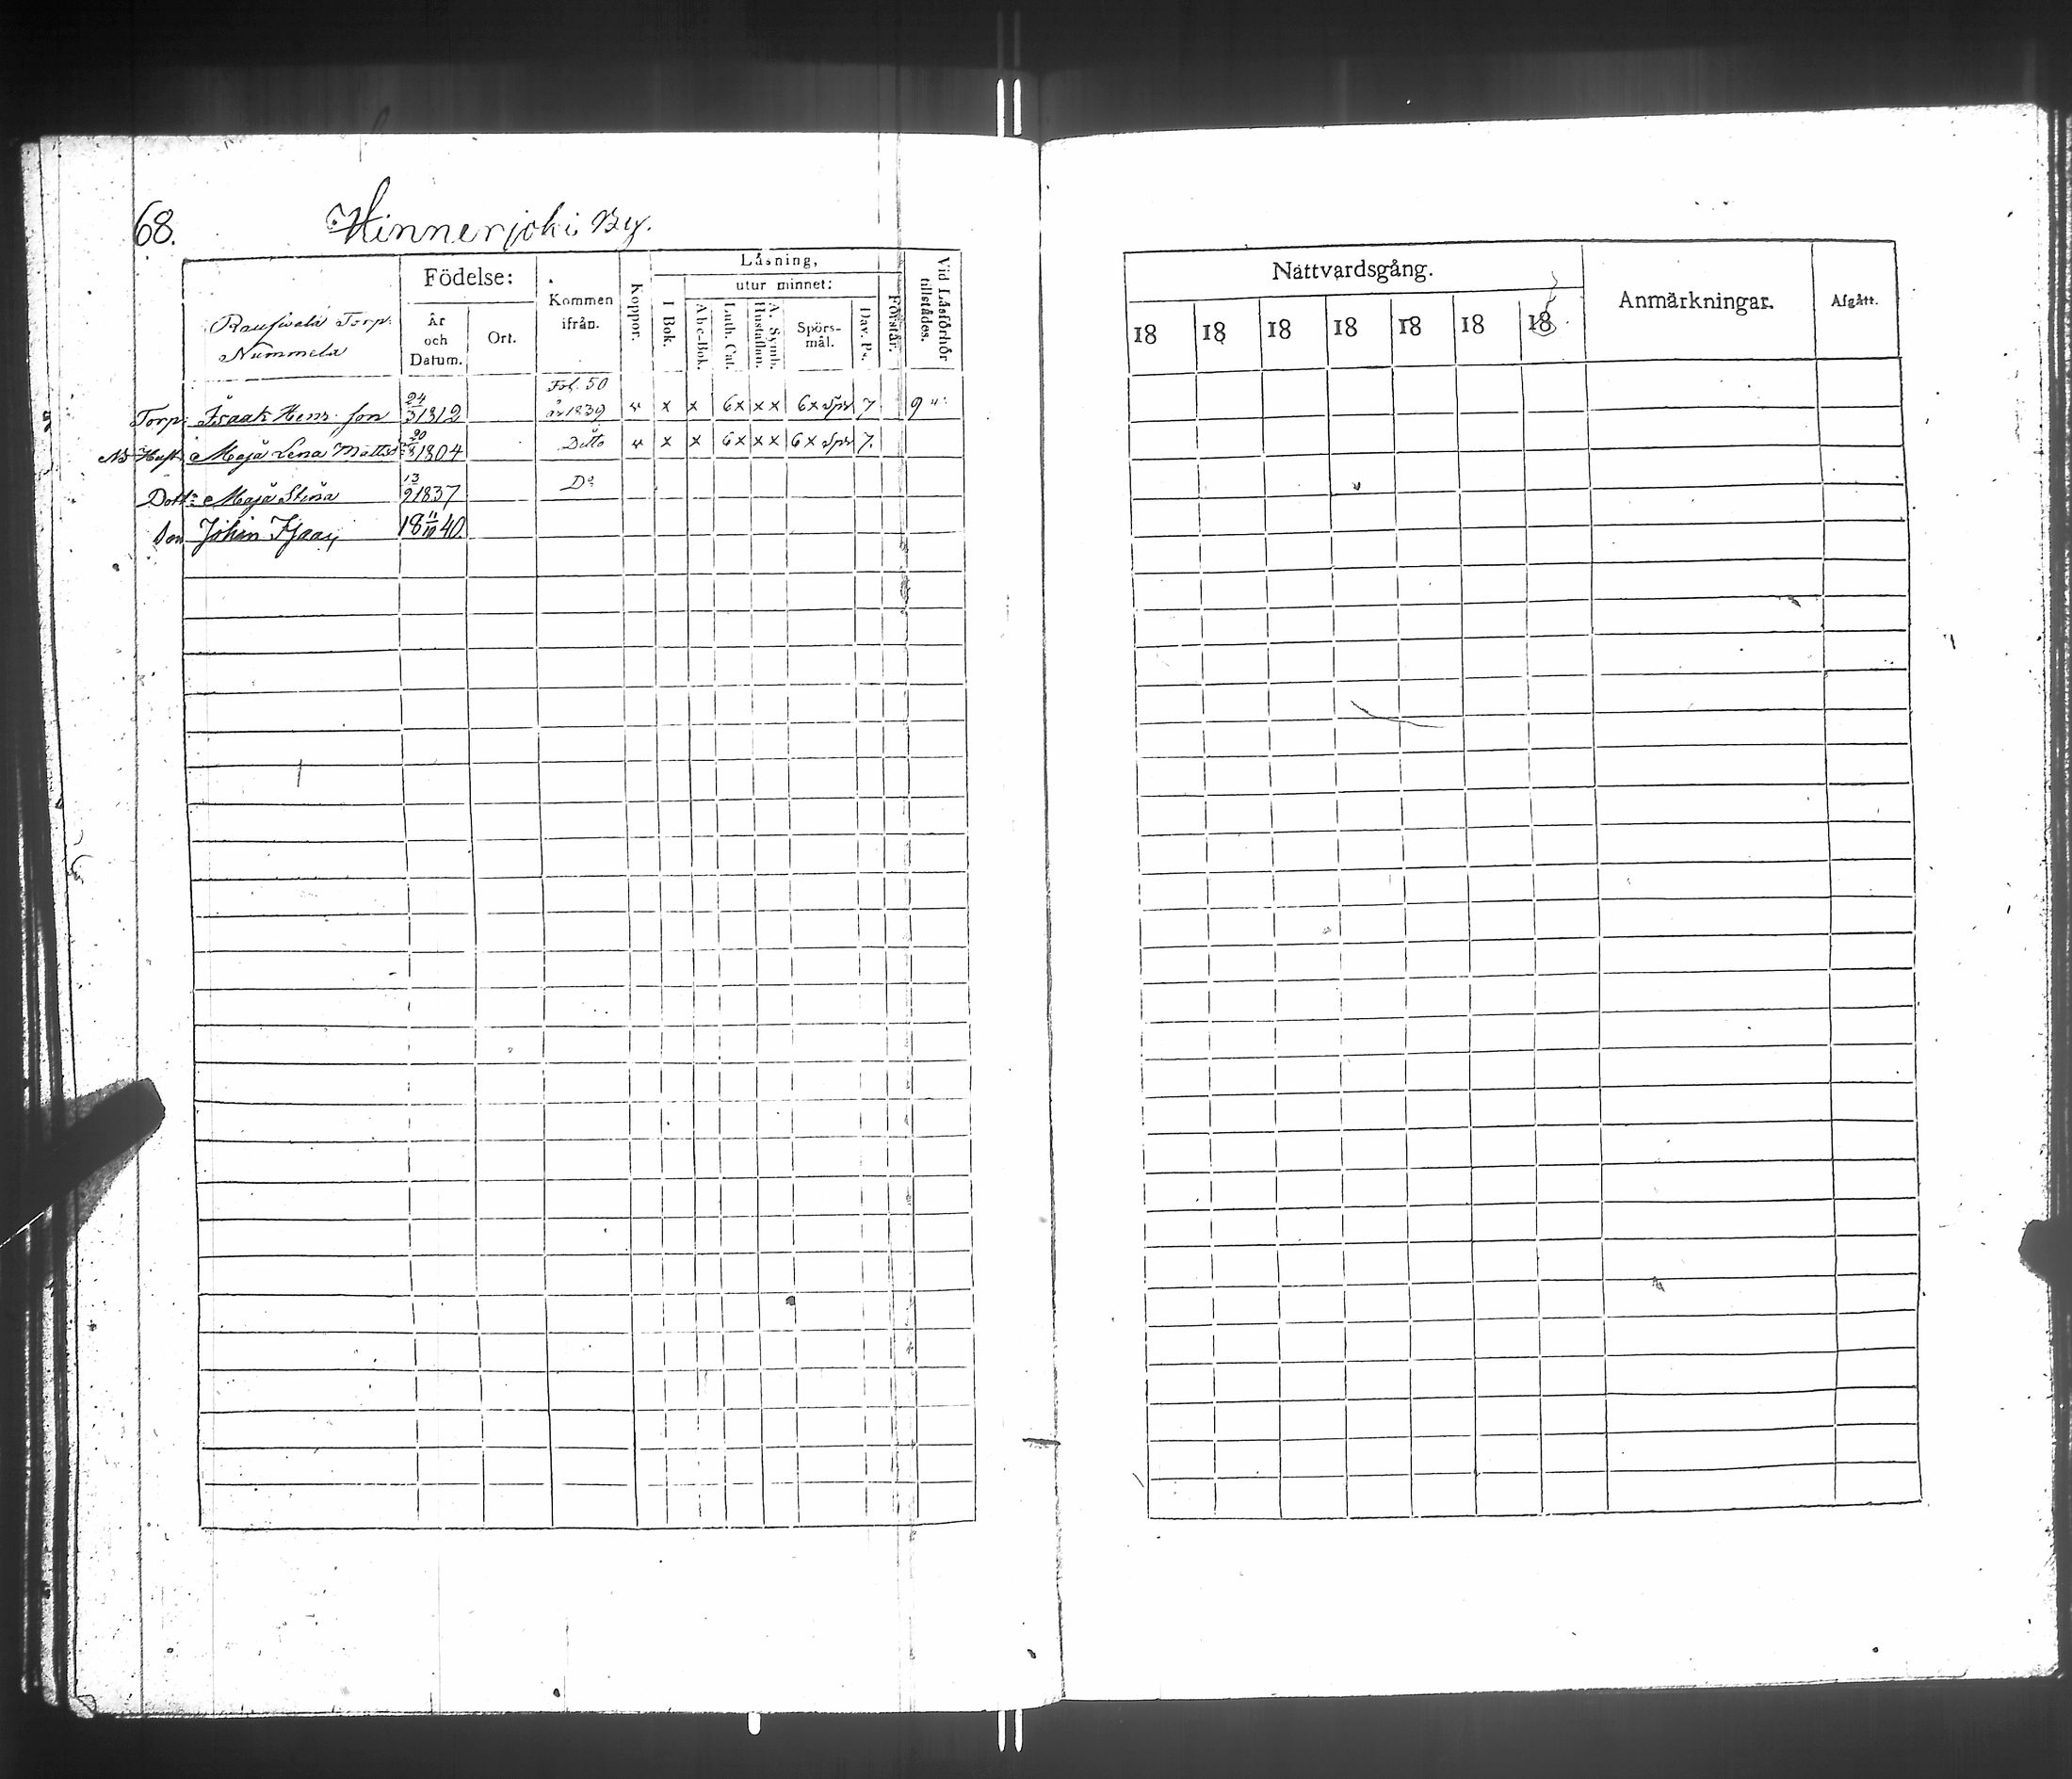 68. Hinnerjoki By.
Födelse: Kommen ifrån. Koppor. Läsning, Vid Läsförhör tillstådes.
utur minnet:
År och Datum. Ort. I Bok. Abc-Bok. Luth. Cat. A. Symb. Hustaflan. Spörs-mål. Dav. Ps. Förstår.
Torp.
Nummela
Fol. 50
Torp: Isaak Henr. son 24/3 1812 år 1839 x x 6x xx 6x Spr 7 9
Hust. Maja Lena Matts 1804 Ditto x x 6x xx 6x Spr 7.
Dott: Maja Stina 13/9 1837 Do
Son Johan Isaac 18 11/10 40.
Nattvardsgång. Anmärkningar. Afgått.
18 18 18 18 18 18 18